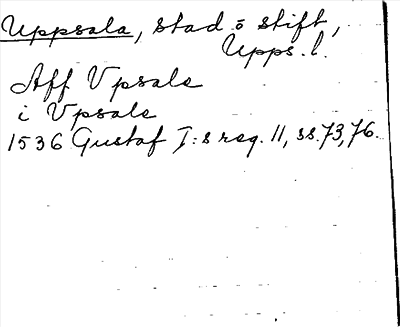 Uppsala, stad o stift,
Upps. l.
Aff Vpsale
i Vpsale
1536 Gustaf I:s reg. 11, ss. 73, 76.